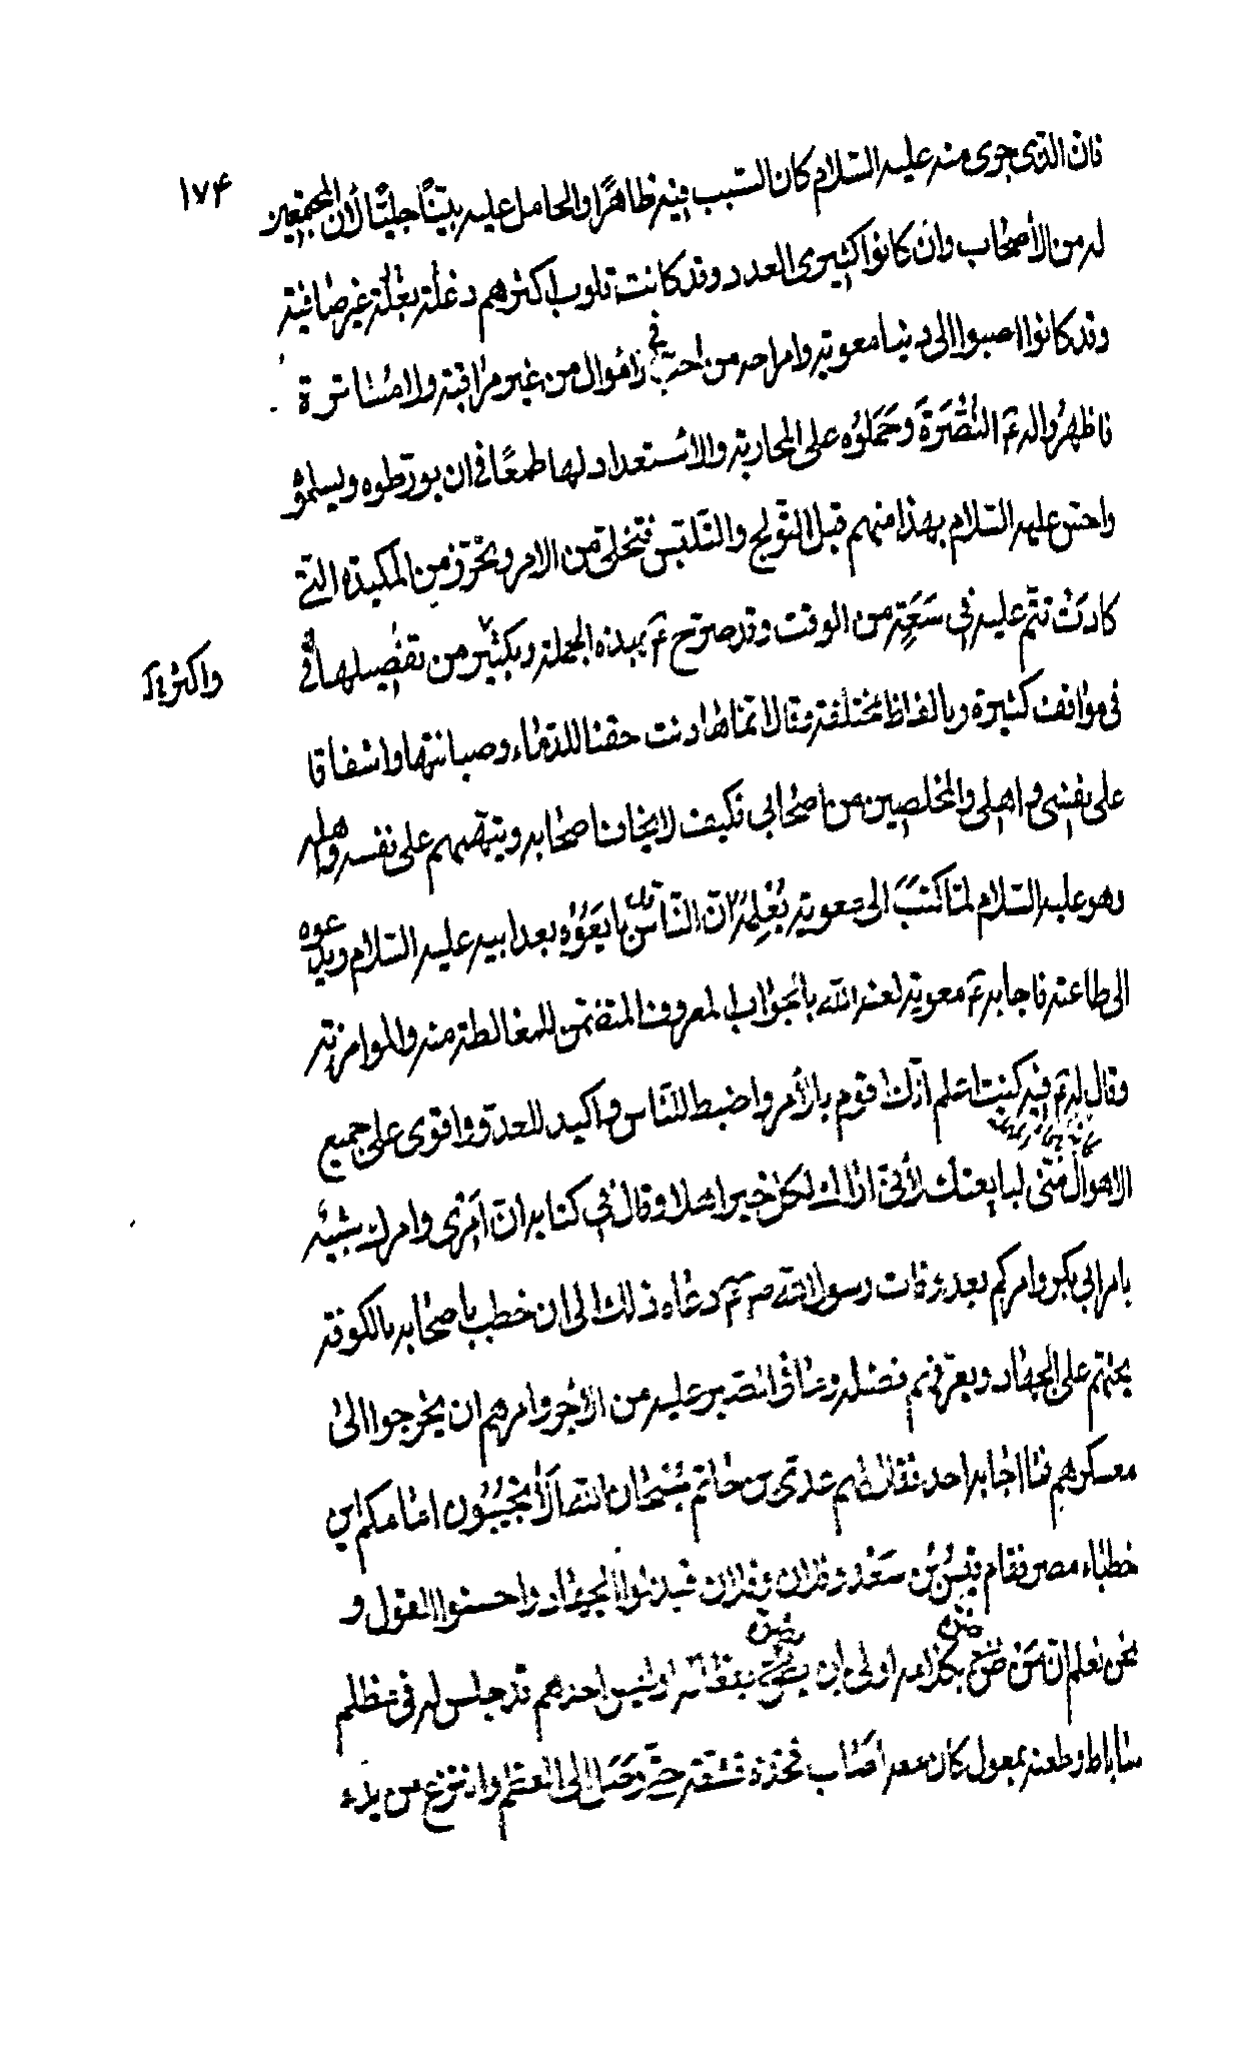 ١٧۴
فان الذى جرى منه عليه السّلام كان السّبب فيه ظاهرًا والحامل عليه بيّنًا جليًّا لأن المجتمعين
له من الأصحاب وان كانوا كثيرى العدد وقد كانت قلوب اكثرهم دغلة نغلة غير صافية
وقد كانوا اصبوا الى دنيا معوية وامراحه من احبّ فى الاموال من غير مراقبة ولا مشاترة
فاظهروا له ع النُّصْرَةَ وَحَمَلوُه على المحاربة والاستعداد لها طمعًا فى ان يورّطوه ويسلموْ
واحسّ عليه السّلام بهذا منهم قبل التولّج والتّلبّس فتخلى من الامر وتحرّز من المكيدة التى
كادَتْ تتمّ عليه فى سَعَةٍ من الوقت وقد صرّح ع بهذه الجملة وبكثير من تفصيلها فى
واكثر
فى مواقف كثيرة وبالفاظ مختلفة وقال انّما هادنت حقنا للدّماء وصيانتها واشفاقا
على نفسى واهلى والمخلصين من اصحابى فكيف لا يخاف اصحابه ويتّهمهم على نفسه واهله
وهو عليه السّلام لمّا كتبَ الى معوية يُعْلِمهُ انّ النّاس قد بايَعَوُه بعد ابيه عليه السّلام ويدعوه
الى طاعته فاجابه معوية لعنه الله بالجواب المعروف المتضمّن للمغالطة منه والمواربة
وقال له فيه لو كنت اعلم انّك اقوم بالأمر واضبط للنّاس واكيد للعدوّ واقوى على جميع
الاموال منّى لبايعتك لأنّى اراك لكلّ خير اهلا وقال فى كتابه انّ امرى وامرك شبيه
بامر ابى بكر وامركم بعد وفات رسول الله ص دعاه ذلك الى ان خطب باصحابه بالكوفة
يحثهم على الجهاد ويعرّفهم فضله وما فى الصّبر عليه من الأجر وامرهم ان يخرجوا الى
معسكرهم فما اجابه احد فقال لهم عدىّ بن حاتم سُبْحان الله الَا تُجيبُون امامكم اين
خطباء مصر فقام قيس بن سَعْد وفلان وفلان فبذلوا الجهاد واحسنوا القول و
نحن نعلم ان مَنْ ضنّ بكلامه اولى ان يضنّ بفعاله اوليس احدهم قد جلس له فى مظلم
ساباط وطعنه بمعول كان معه اصاب فخذه فشقّه حتّى وصل الى العظم وانتزع من يده